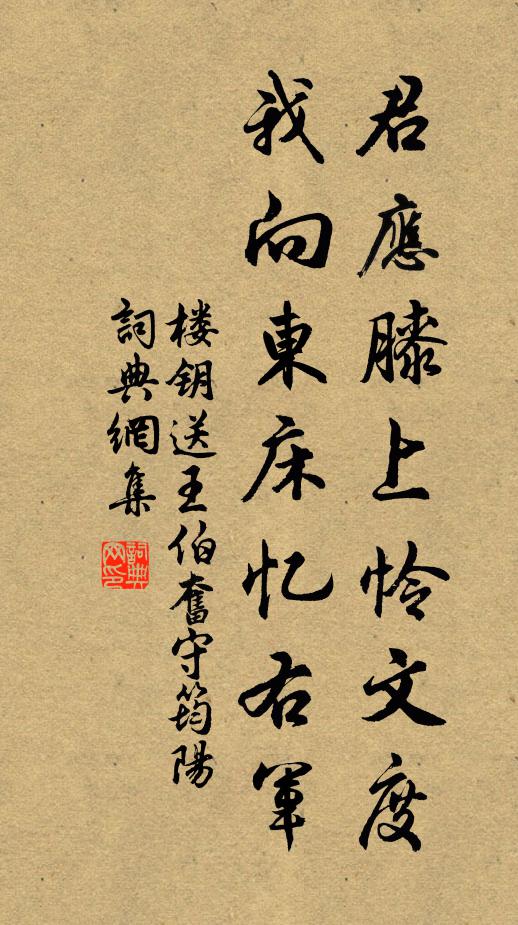 君應膝上怜文度
我向東床忆右軍
楼钥送王伯奮守筠陽
詞典網集
詞典網印